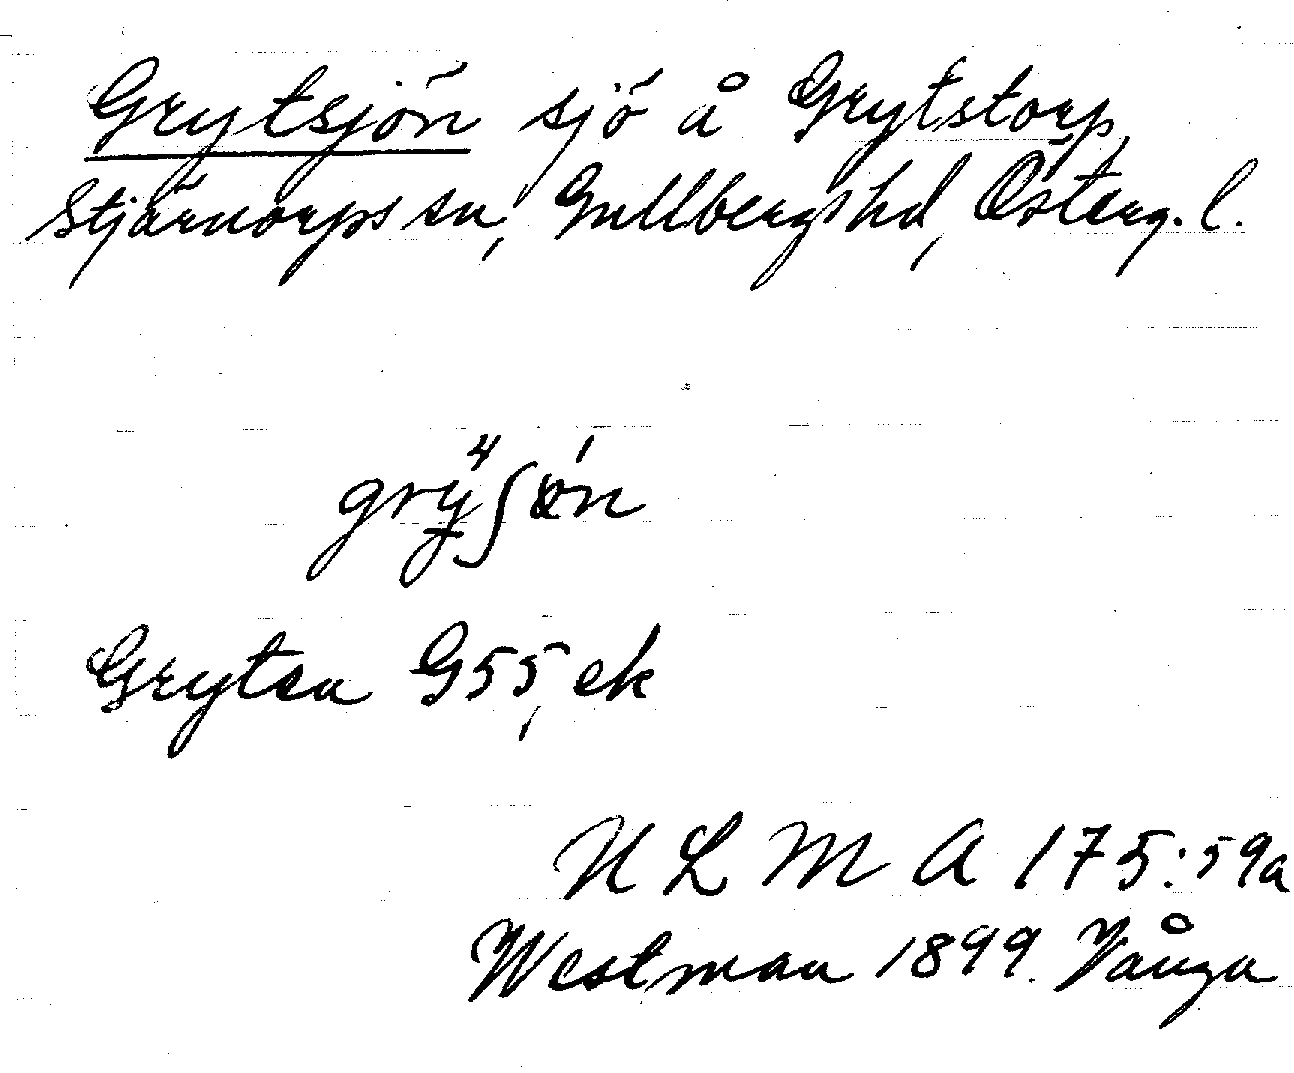 Grytsjön sjö å Grytstorp,
Stjärnorps sn, Gullbergs hd, Österg. l.
Grytsn G55, ek
ULMA 175:59a
Westman 1899. Vånga